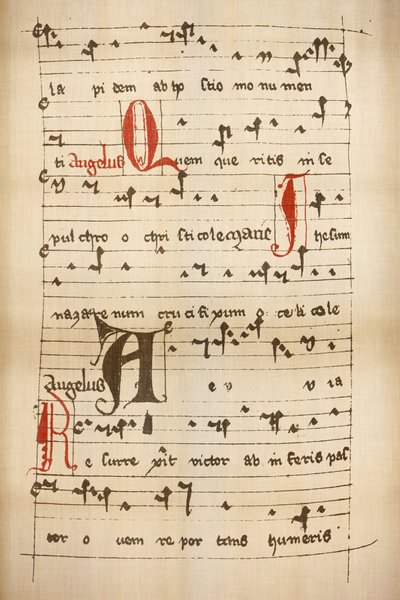 la pi dem ab hο stio mo nu men
ti Angelus Quem que ritis in se
pul chro o chri sti cole Marie Ihesum
nazare num cru ci fi xum o celi cole
Angelus A e v v ia
Re surre xit victor ab in feris pas
tor o vem re por tans humeris